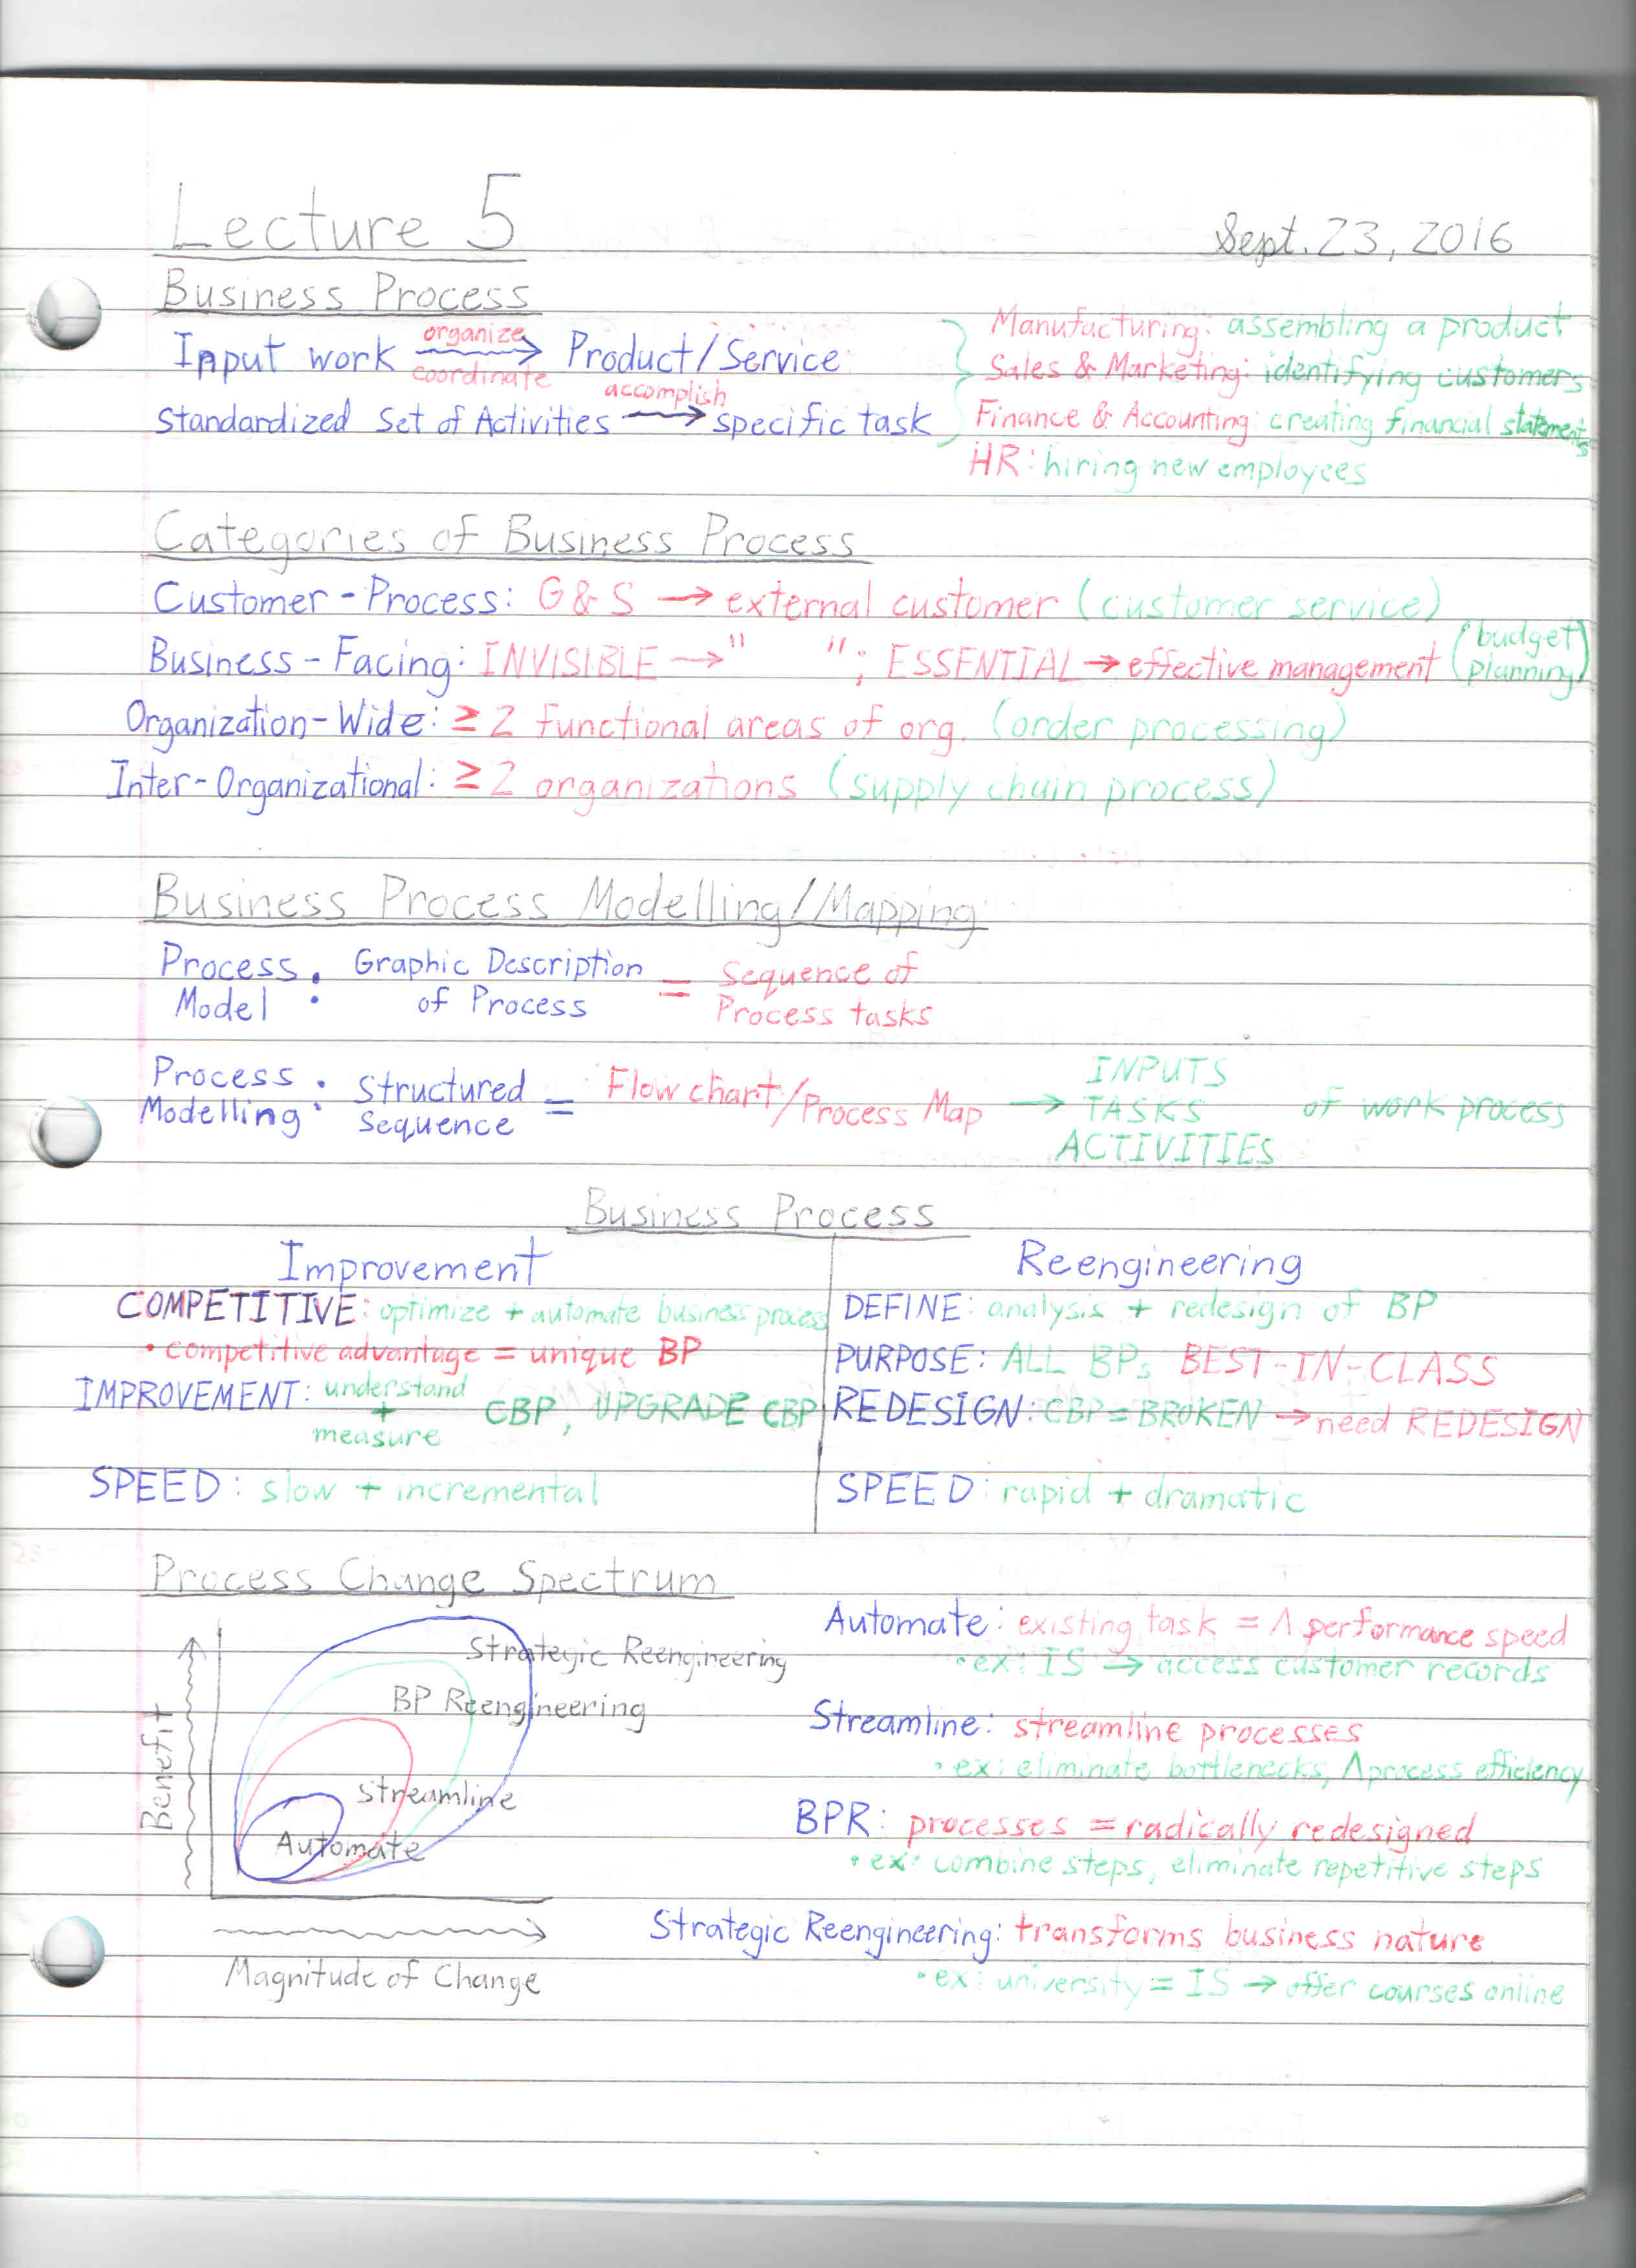 Lecture 5
Sept. 23, 2016
Business Process
Input work organize coordinate → Product/Service
Standardized Set of Activities accomplish → specific task
Manufacturing: assembling a product
Sales & Marketing: identifying customers
Finance & Accounting: creating financial statements
HR: hiring new employees
Categories of Business Process
Customer-Process: G & S → external customer (customer service)
Business-Facing: INVISIBLE → " "; ESSENTIAL → effective management (budget planning)
Organization-Wide: ≥ 2 functional areas of org. (order processing)
Inter-Organizational: ≥ 2 organizations (supply chain process)
Business Process Modelling/Mapping
Process Model: Graphic Description of Process = Sequence of Process tasks
Process Modelling: Structured Sequence = Flow chart/Process Map → INPUTS TASKS ACTIVITIES of work process
Business Process
Improvement
COMPETITIVE: optimize + automate business process
• competitive advantage = unique BP
IMPROVEMENT: understand + measure CBP, UPGRADE CBP
SPEED: slow + incremental
Reengineering
DEFINE: analysis + redesign of BP
PURPOSE: ALL BPs BEST-IN-CLASS
REDESIGN: CBP = BROKEN → need REDESIGN
SPEED: rapid + dramatic
Process Change Spectrum
Benefit
Strategic Reengineering
BP Reengineering
Streamline
Automate
Magnitude of Change
Automate: existing task = Λ performance speed
• ex: IS → access customer records
Streamline: streamline processes
• ex: eliminate bottlenecks, Λ process efficiency
BPR: processes = radically redesigned
• ex: combine steps, eliminate repetitive steps
Strategic Reengineering: transforms business nature
• ex: university = IS → offer courses online